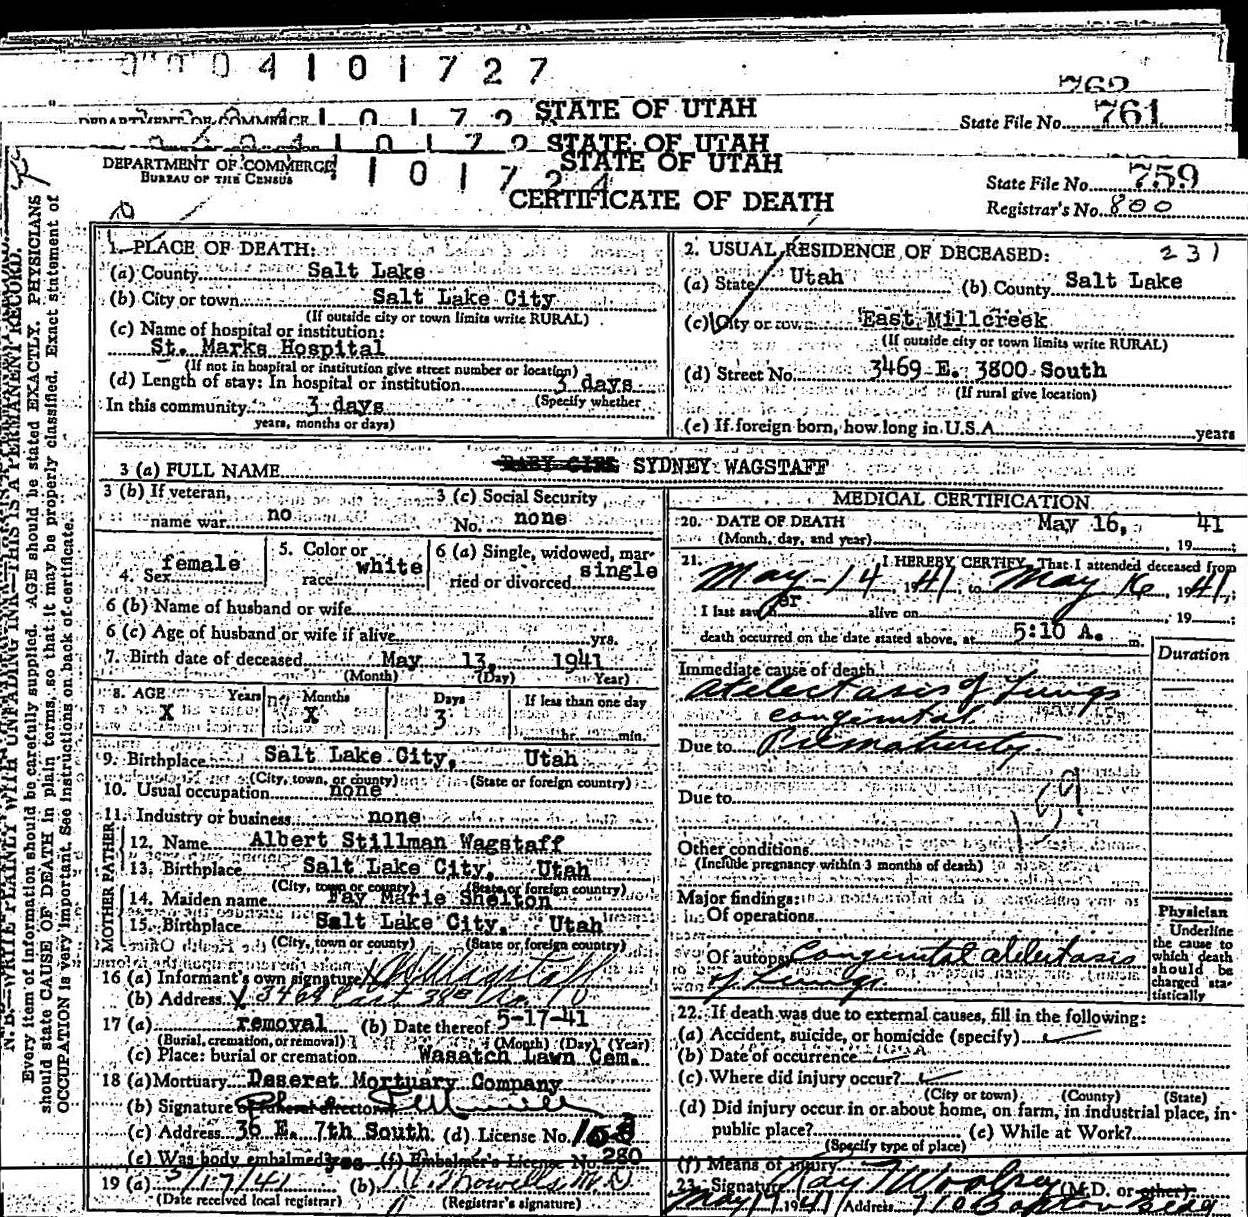 0004101727
762
DEPARTMENT OF COMMERCE
STATE OF UTAH
State File No. 761
STATE OF UTAH
DEPARTMENT OF COMMERCE
BUREAU OF THE CENSUS
STATE OF UTAH
CERTIFICATE OF DEATH
State File No. 759
Registrar's No. 800
231
1. PLACE OF DEATH:
(a) County Salt Lake
(b) City or town Salt Lake City
(If outside city or town limits write RURAL)
(c) Name of hospital or institution:
St. Marks Hospital
(If not in hospital or institution give street number or location)
(d) Length of stay: In hospital or institution 3 days
(Specify whether
In this community 3 days
years, months or days)
2. USUAL RESIDENCE OF DECEASED:
(a) State Utah (b) County Salt Lake
(c) City or town East Millcreek
(If outside city or town limits write RURAL)
(d) Street No. 3469 E. 3800 South
(If rural give location)
(e) If foreign born, how long in U.S.A. years
3 (a) FULL NAME BABY GIRL SYDNEY WAGSTAFF
3 (b) If veteran,
name war no
3 (c) Social Security
No. none
4. Sex female
5. Color or
race white
6 (a) Single, widowed, mar-
ried or divorced single
6 (b) Name of husband or wife
6 (c) Age of husband or wife if alive yrs.
7. Birth date of deceased May 13, 1941
(Month) (Day) Year)
8. AGE Years Months Days If less than one day
X X 3 hr. min.
9. Birthplace Salt Lake City, Utah
(City, town, or county) (State or foreign country)
10. Usual occupation none
11. Industry or business none
FATHER
12. Name Albert Stillman Wagstaff
13. Birthplace Salt Lake City, Utah
(City, town or county) (State or foreign country)
MOTHER
14. Maiden name Fay Marie Shelton
15. Birthplace Salt Lake City, Utah
(City, town or county) (State or foreign country)
16 (a) Informant's own signature Wagstaff
(b) Address 3469 East
17 (a) removal (b) Date thereof 5-17-41
(Burial, cremation, or removal) (Month) (Day) (Year)
(c) Place: burial or cremation Wasatch Lawn Cem.
18 (a) Mortuary Deseret Mortuary Company
(b) Signature of funeral director
(c) Address 36 E. 7th South (d) License No.
(e) Was body embalmed? yes (f) Embalmer's License No. 280
19 (a) 5/17/41 (b) M.D.
(Date received local registrar) (Registrar's signature)
MEDICAL CERTIFICATION
20. DATE OF DEATH May 16, 41
(Month, day, and year) , 19 ;
21. I HEREBY CERTIFY, That I attended deceased from
May-14 1941, to May 16, 1941;
I last saw her alive on , 19 ;
death occurred on the date stated above, at 5:10 A. m.
Duration
Immediate cause of death
Atelectasis of Lungs
congenital
Due to Prematurity
Due to
159
Other conditions
(Include pregnancy within 3 months of death)
Major findings:
Of operations
Of autopsy Congenital atelectasis
of Lungs
Physician
Underline
the cause to
which death
should be
charged sta-
tistically
22. If death was due to external causes, fill in the following:
(a) Accident, suicide, or homicide (specify)
(b) Date of occurrence
(c) Where did injury occur?
(City or town) (County) (State)
(d) Did injury occur in or about home, on farm, in industrial place, in-
public place? (e) While at Work?
(Specify type of place)
(f) Means of injury
23. Signature Ray T Woolsey (M.D. or other)
May 19 1941 Address Bldg
N. B.—WRITE PLAINLY WITH UNFADING INK—THIS IS A PERMANENT RECORD.
Every item of information should be carefully supplied. AGE should be stated EXACTLY. PHYSICIANS
should state CAUSE OF DEATH in plain terms, so that it may be properly classified. Exact statement of
OCCUPATION is very important. See instructions on back of certificate.